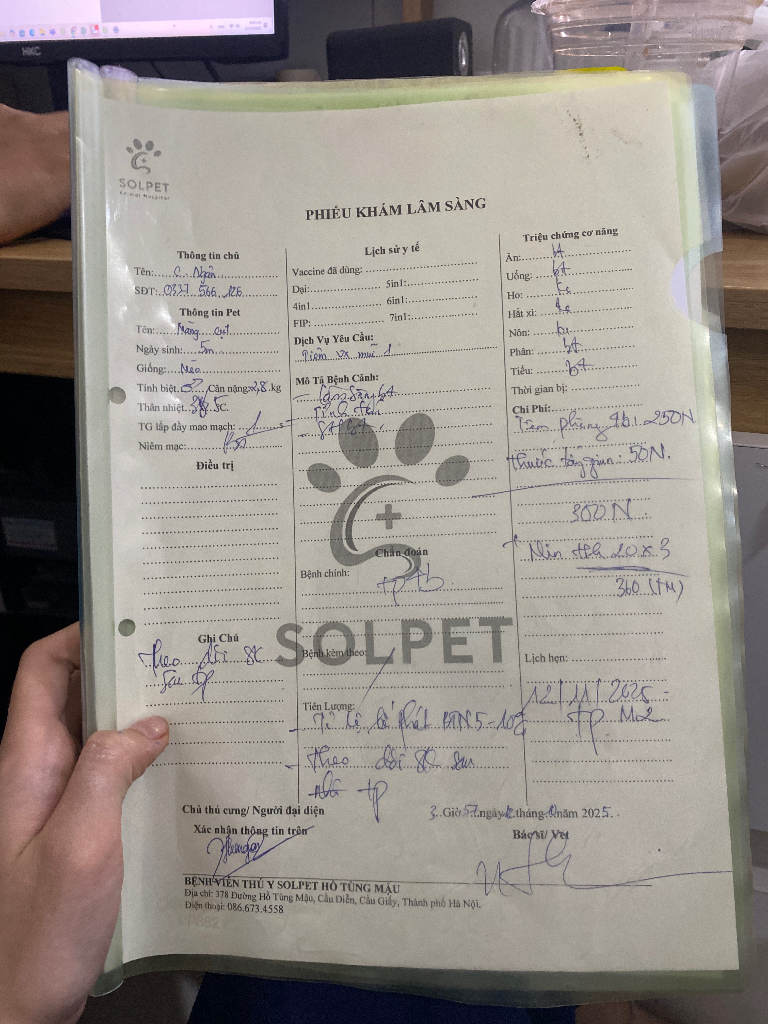 HKC
SOLPET
Animal Hospital
PHIẾU KHÁM LÂM SÀNG
Thông tin chủ
Tên: C. Ngân
SĐT: 0337 566 126
Thông tin Pet
Tên: Măng cụt
Ngày sinh: 5m
Giống: Mèo
Tính biệt. Cân nặng: 2,8 kg
Thân nhiệt. 38,5 C.
TG lấp đầy mao mạch: 1
Niêm mạc:
Điều trị
Ghi Chú
theo dõi SK
sau tp
Lịch sử y tế
Vaccine đã dùng:
Dại: 5in1:
4in1 6in1:
FIP: 7in1:
Dịch Vụ Yêu Cầu:
Tiêm vx mũi 1
Mô Tả Bệnh Cảnh:
- Lâm sàng bt
- SHbt.
Chẩn đoán
Bệnh chính:
SOLPET
Bệnh kèm theo:
Tiên Lượng:
5-10%
- theo dõi SK sau
tp
Triệu chứng cơ năng
Ăn: bt
Uống: bt
Ho: ko
Hắt xì: ko
Nôn: ko
Phân: bt
Tiểu: bt
Thời gian bị:
Chi Phí:
Tiêm phòng 4b1: 250N
thuốc tẩy giun: 50N.
300N.
20 x 3
360 (TM)
Lịch hẹn:
12/11/2025
TP. M2
Chủ thú cưng/ Người đại diện
Xác nhận thông tin trên
3 Giờ 57 ngày tháng năm 2025
Bác sĩ Vet
BỆNH VIỆN THÚ Y SOLPET HỒ TÙNG MẬU
Địa chỉ: 378 Đường Hồ Tùng Mậu, Cầu Diễn, Cầu Giấy, Thành phố Hà Nội.
Điện thoại: 086.673.4558